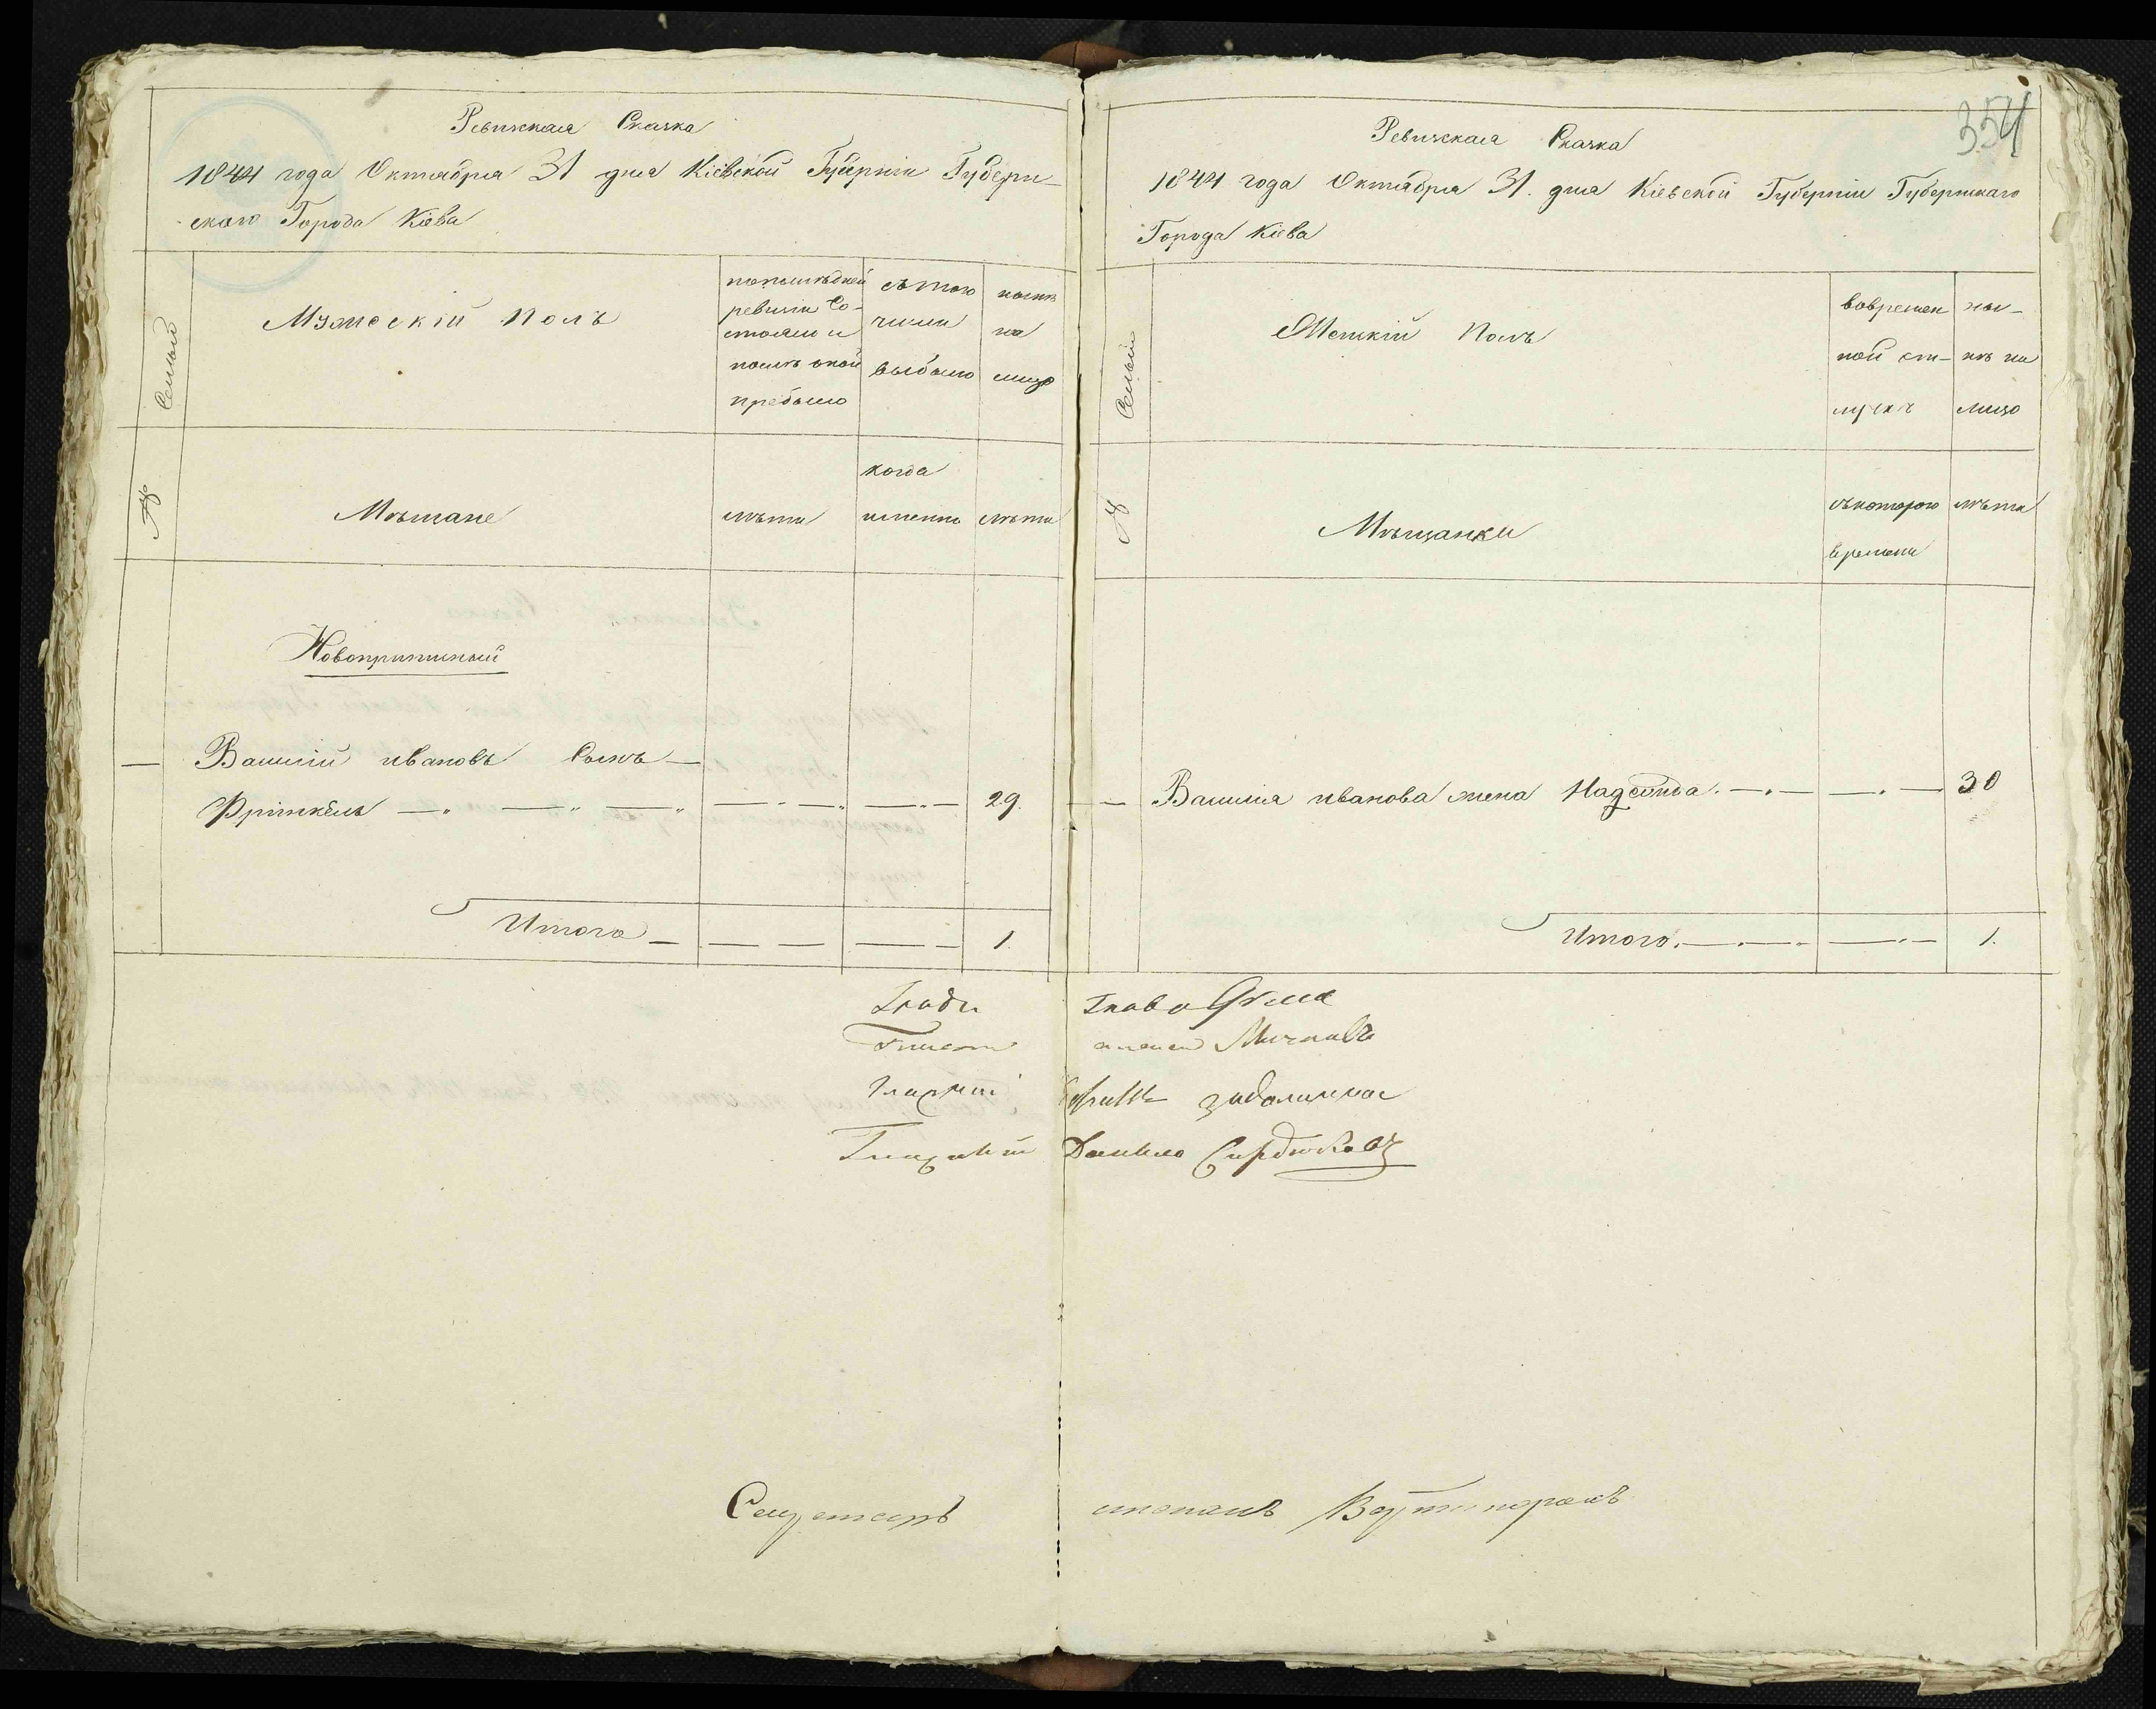 Ревизская Сказка
1844 года Октября 31 дня Кіевской Губерніи Губерн-
скаго Города Кіева
№ Семьи
Мужескій полъ
попослѣдней
ревизіи Со-
стояло и
послѣ оной
прибыло
съ того
числа
выбыло
нынѣ
на
лицо
Мѣщане
лѣта
когда
именно
лѣта
Новоприписный
— Василій ивановъ Сынъ —
29.
Итого — — — — — 1.
354
Ревизская Сказка
1844 года Октября 31. дня Кіевской Губерніи Губернскаго
Города Кіева
№ Семьи
Женскій Полъ
вовремен
ной от-
лучкѣ
ны-
нѣ на
лицо
Мѣщанки
съкотораго
времени
лѣта
— Василія иванова жена Надежда . — . — — . — 30
Итого . — . — . — . — 1.
Гласный
Гласный Данило Сердюковъ
Секретарь степанъ